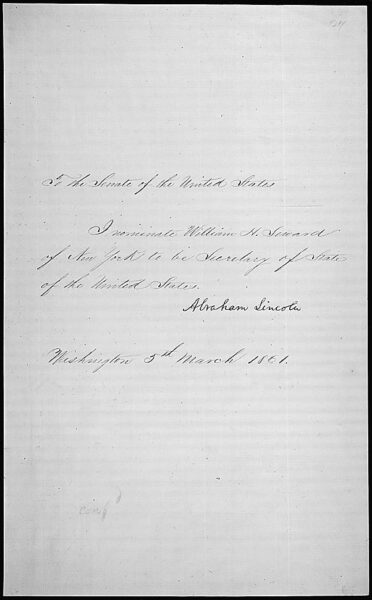 To the Senate of the United States
I nominate William H. Seward
of New York to be Secretary of State
of the United States.
Abraham Lincoln
Washington 5th March 1861.